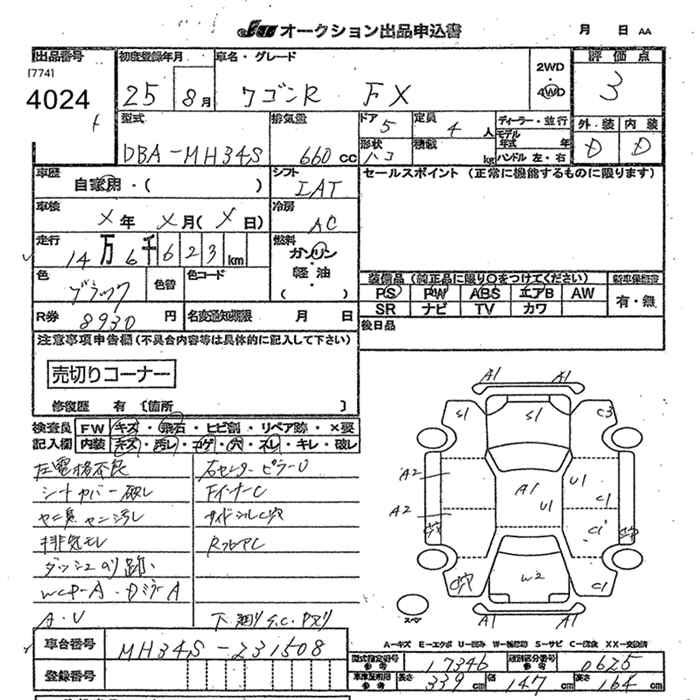 JU オークション出品申込書 月 日 AA
出品番号
(774)
4024
初度登録年月
25年 8月
車名・グレード
ワゴンR FX
2WD
4WD
評価点
3
型式
DBA-MH34S
排気量
660cc
ドア 5
定員 4人
形状 ハコ
積載 kg
ディーラー・並行
モデル年式 年
ハンドル 左・右
外装 内装
D D
車歴
自家用・( )
シフト
IAT
セールスポイント (正常に機能するものに限ります)
車検
X年 X月(X日)
冷房
AC
走行
14万6千623km
燃料
ガソリン
軽油
( )
色
ブラック
色替
色コード
装備品 (純正品に限り○をつけてください)
PS PW ABS エアB AW
SR ナビ TV カワ
新車保証書
有・無
R券 8930円
名変通知期限 月 日
後日品
注意事項申告欄(不具合内容等は具体的に記入して下さい)
売切りコーナー
修復歴 有〔箇所 〕
検査員記入欄
FW キズ・飛石・ヒビ割・リペア跡・×要
内装 キズ・汚レ・コゲ・穴・スレ・キレ・破レ
右センターピラーU
シートカバー破レ
FインナーC
ヤニ臭ヤニ汚レ
サイドシルC穴
排気モレ
RフロアC
ダッシュのり跡
WCP-A・DミラーA
A・U
下廻りS.C.
A1
S1 S1 C3
A2
A1
U1
C1
U1
A2
C1
W2
C1
A1
スペア
A=キズ E=エクボ U=凹み W=補修跡 S=サビ C=腐食 XX=交換済
車台番号
MH34S-231508
登録番号
型式指定番号 参考
17346
類別区分番号 参考
0625
車庫証明用 参考
長さ 339cm
幅 147cm
高さ 164cm